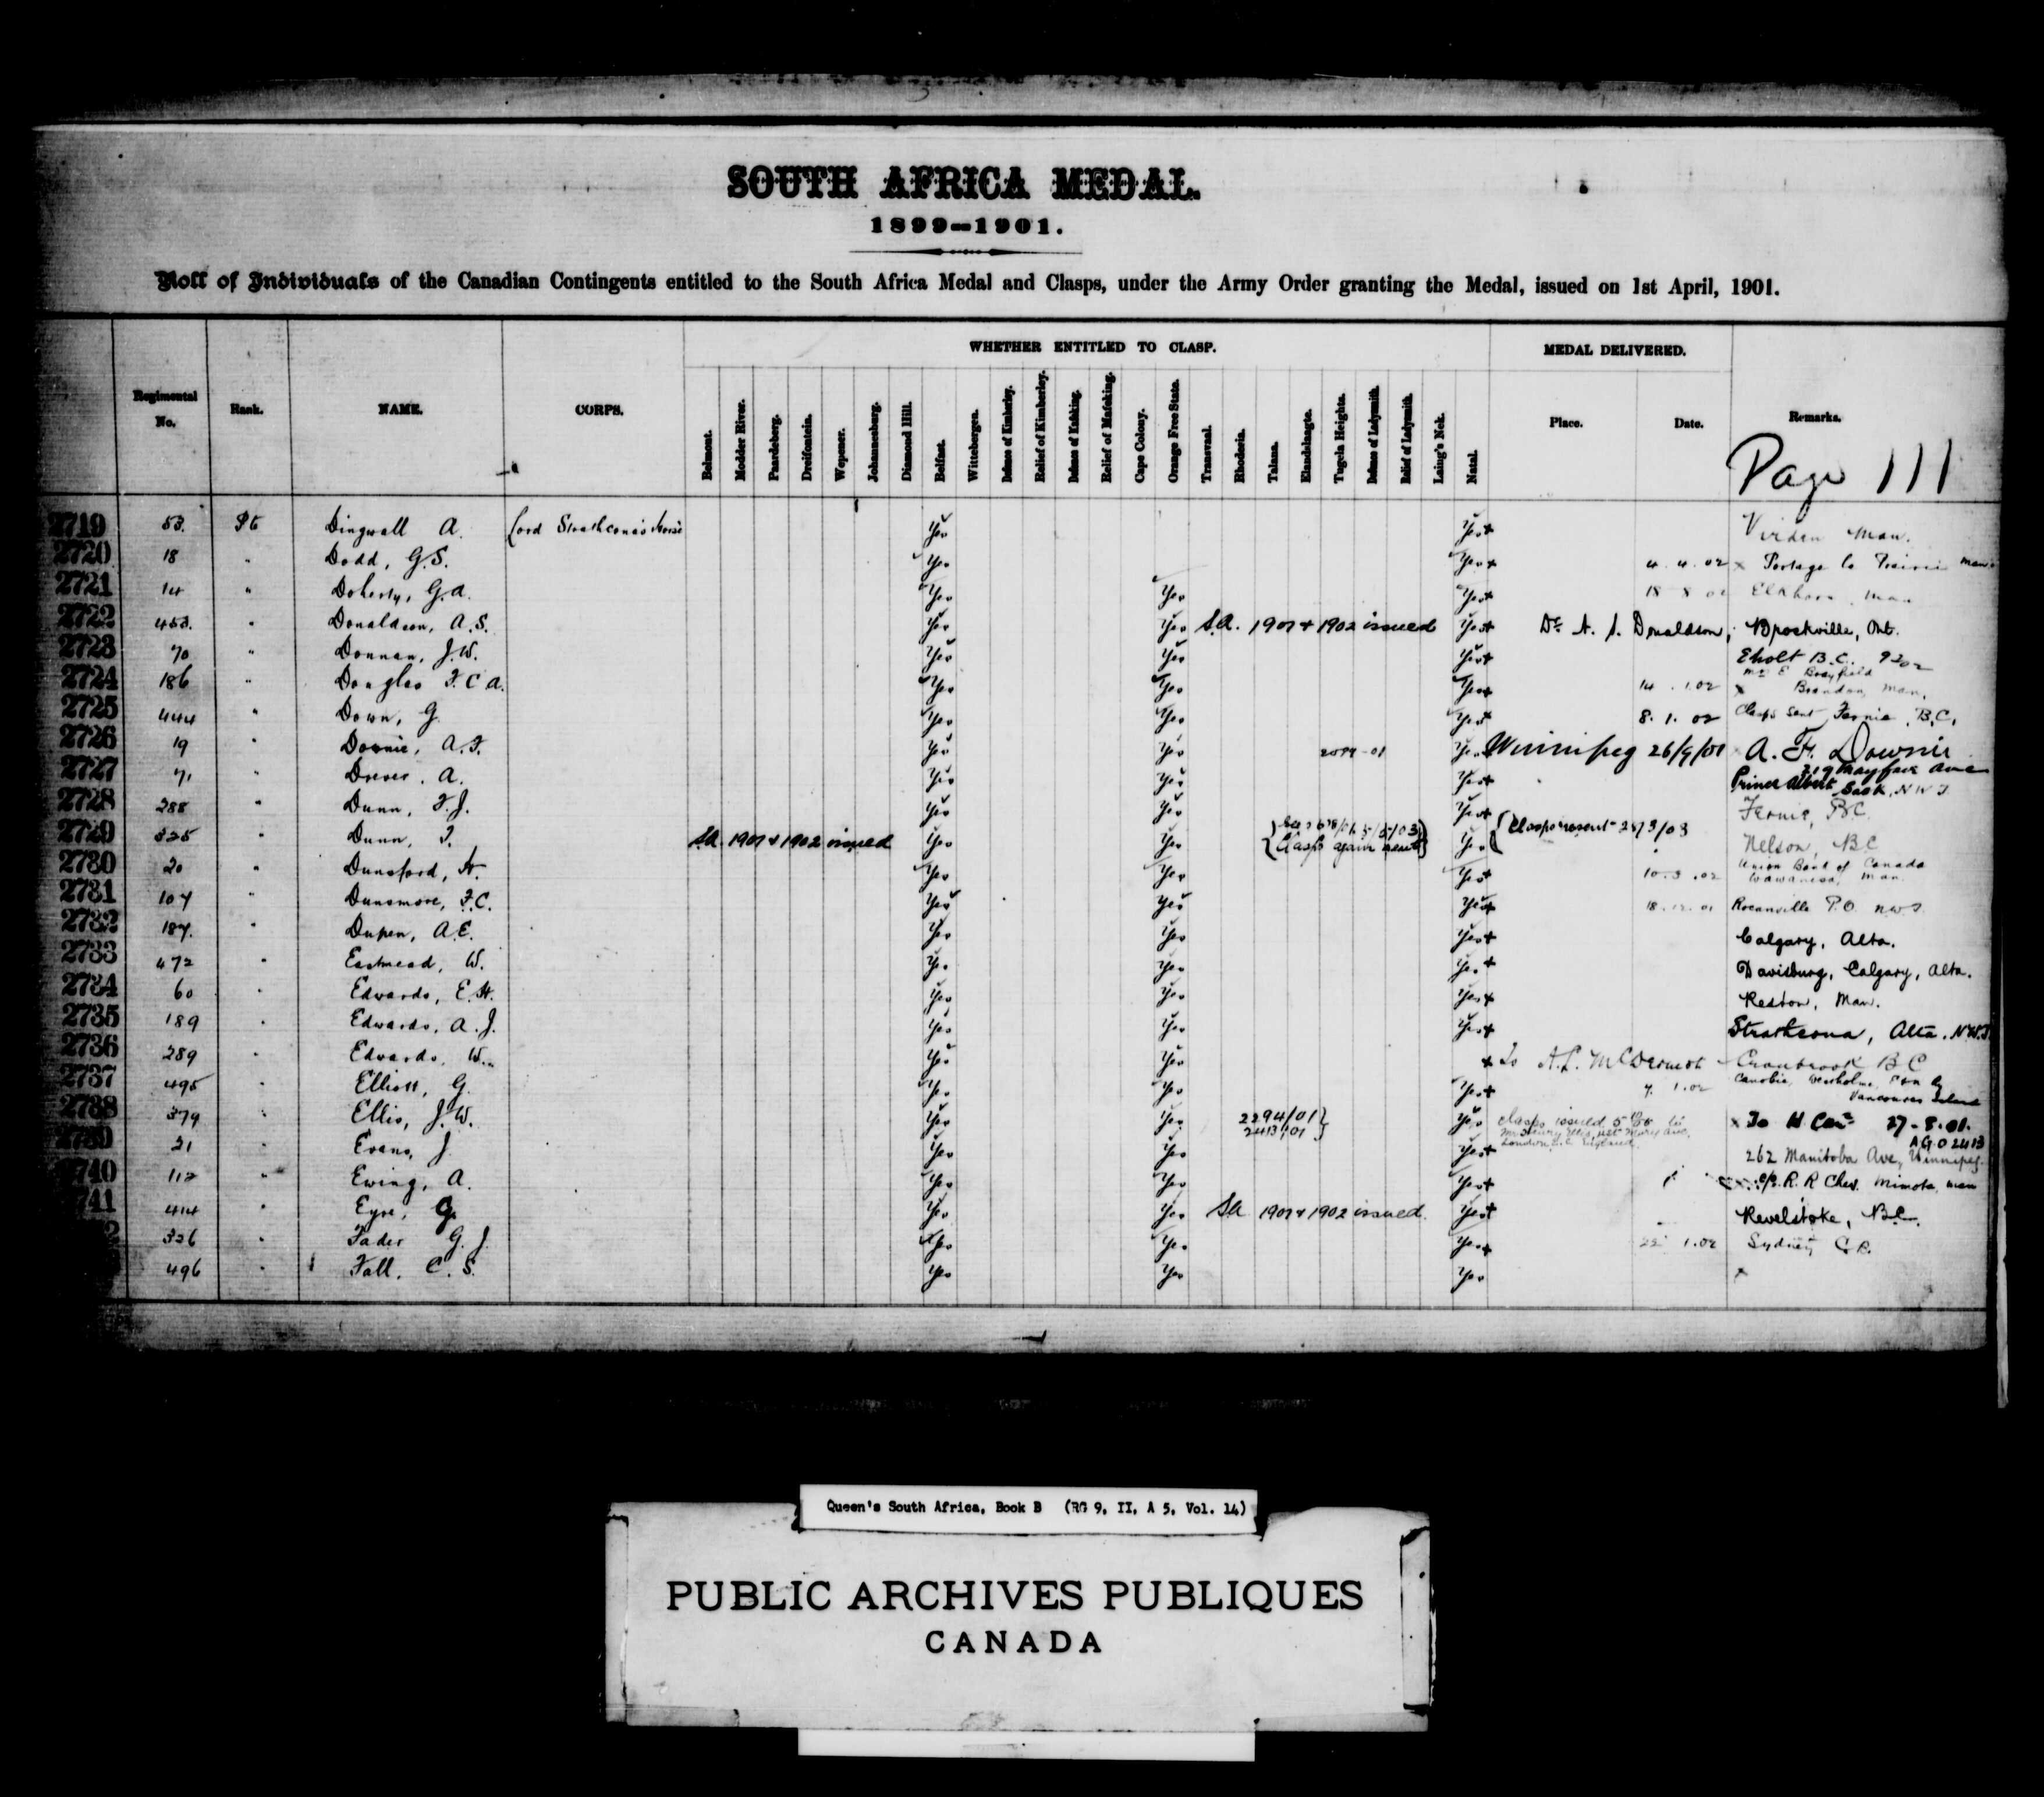 SOUTH AFRICA MEDAL.
1899--1901.
Roll of Individuals of the Canadian Contingents entitled to the South Africa Medal and Clasps, under the Army Order granting the Medal, issued on 1st April, 1901.
WHETHER ENTITLED TO CLASP. MEDAL DELIVERED.
Regimental No. Rank. NAME. CORPS. Belmont. Modder River. Paardeberg. Dreifontein. Wepener. Johannesburg. Diamond Hill. Belfast. Wittebergen. Defense of Kimberley. Relief of Kimberley. Defense of Mafeking. Relief of Mafeking. Cape Colony. Orange Free State. Transvaal. Rhodesia. Talana. Elandslaagte. Tugela Heights. Defense of Ladysmith. Relief of Ladysmith. Laing's Nek. Natal. Place. Date. Remarks.
Page 111
2719 53. Pte Dingwall A. Lord Strathcona's Horse Yes Yes+ Virden Man.
2720 18 " Dodd, G.S. Yes Yes+ 4. 4. 02 x Portage la Prairie Man.
2721 14 " Doherty, G.A. Yes Yes Yes+ 18 8 02 Elkhorn Man
2722 453. " Donaldson, A.S. Yes Yes S.A. 1901 & 1902 issued Yes+ Donaldson, Brockville, Ont.
2723 70 " Donnan, J.W. Yes Yes Yes+ Eholt B.C.
2724 186 " Douglas F.C.A. Yes Yes Yes+ 14 . 1.02 x Mrs E Brayfield Brandon, Man.
2725 444 " Down, G. Yes Yes Yes+ 8. 1. 02 Clasps Sent Fernie, B.C.
2726 19 " Downie, A.F. Yes Yes Yes+ Winnipeg 26/9/01 A. F. Downie
319 Mayfair Ave
2727 71 " Drever. A. Yes Yes Yes+ Prince Albert Sask. N.W.T
2728 288 " Dunn, F.J. Yes Yes Yes+ Fernie, BC.
2729 325 " Dunn, T. S.A. 1901 & 1902 issued Yes Yes Clasps again Yes Clasps resent 28/3/03 Nelson, BC
2730 20 " Dunsford, H. Yes Yes Yes+ 10.3.02 Union Bank of Canada
Wawanesa, Man.
2731 107 " Dunsmore, F.C. Yes Yes Yes+ 18.12.01 Rocanville P.O. N.W.T.
2732 187. " Dupen, A.E. Yes Yes Yes+ Calgary, Alta.
2733 472 " Eastmead, W. Yes Yes Yes+ Davisburg, Calgary, Alta.
2734 60 " Edwards, E.H. Yes Yes Yes+ Reston, Man.
2735 189 " Edwards, A.J. Yes Yes Yes+ Strathcona, Alta. N.W.T
2736 289 " Edwards, W. Yes Yes + To A.L. McDermot Cranbrook BC
2737 495 " Elliott, G. Yes Yes Yes+ 7. 1.02 Vancouver Island
2738 379 " Ellis, J.W. Yes Yes 2294/01 2413/01 Yes Clasps issued x To H Can 27-8.01.
A.G.O 2413
2739 21 " Evans, J. Yes Yes Yes+ 262 Manitoba Ave, Winnipeg.
2740 112 " Ewing, A. Yes Yes Yes+ c/o R. R Chev. Miniota, Man
741 414 " Eyre, G. Yes Yes S.A. 1901 & 1902 issued. Yes+ Revelstoke, B.C.
326 " Fader G.J. Yes Yes Yes+ 22 1.02 Sydney C.B.
496 " Fall. C.S. Yes Yes Yes x
Queen's South Africa, Book B (RG 9, II, A 5, Vol. 14)
PUBLIC ARCHIVES PUBLIQUES
CANADA